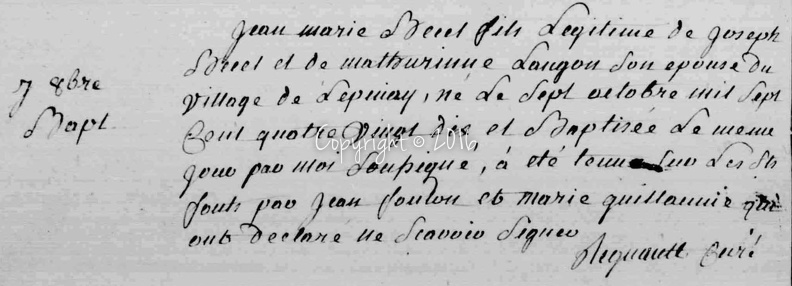 Jean marie Brect fils Legitime de Joseph
Brect et de mathurinne Langon Son epouse du
7 8bre village de Lepinay, né Le Sept octobre mil Sept
Bapt Cent quatre vingt dix et Baptisée Le meme
Jour par moi Soussigné, a été tenu Sur Les Sts
fonts par Jean foulon et marie guillaumie qui
ont declaré ne Scavoir Signer
Regnault Curé
Copyright © 2016